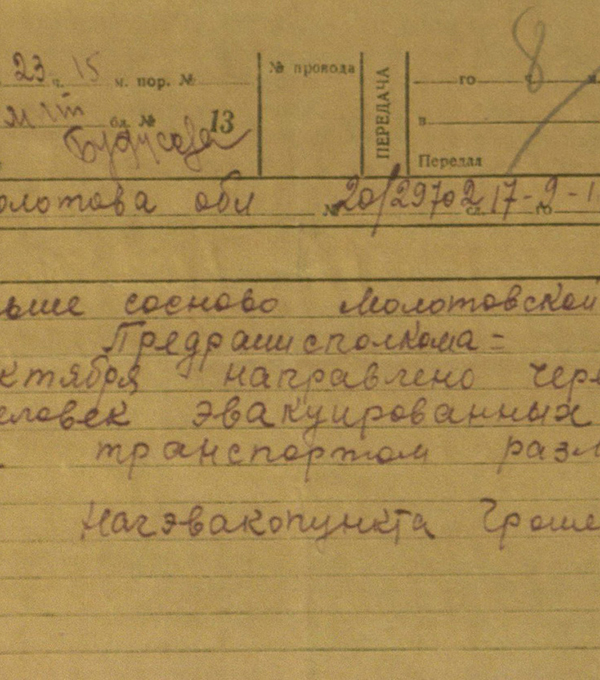 23 ч. 15 м. пор. №
№ провода
ПЕРЕДАЧА
го ч. м.
бл. № 13
в
Передал
олотова обл № 20/29702 17-9-1
ьше сосново Молотовской
Предрайисполкома =
ктября направлено чере
еловек эвакуированных
транспортом разм
Начэвакопункта Гроше